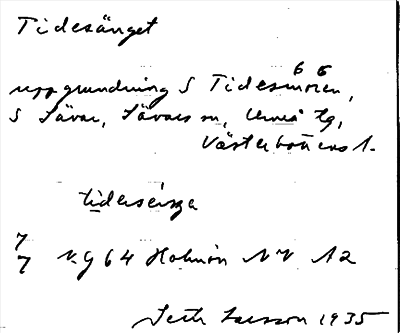 Tidesänget
6 6
uppgrundning S Tidesmoren,
S Sävar, Sävars sn, Umeå tg,
Västerbottens l.
7
7 V.g 64 Holmön NV A2
Seth Larsson 1935